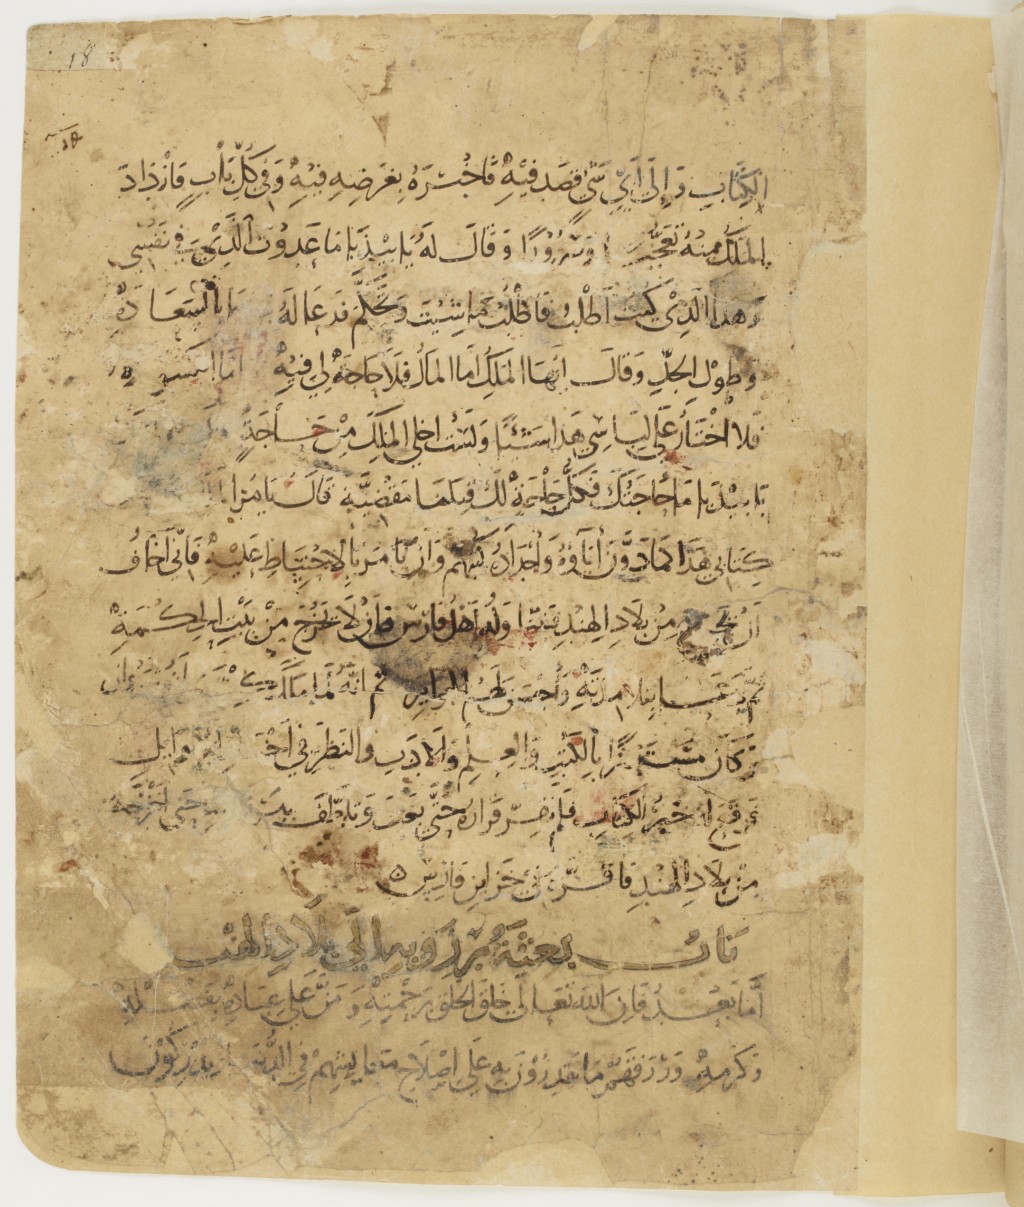 18
الكتاب والى اي شي قصد فيه فاخبره بغرضه فيه وفي كل باب فازداد
الملك منه تعجبا وسرورا وقال له يا بيدبا ما عدوت الذي في نفسي
وهذا الذي كنت اطلب فاطلب ما شيت وتحكم فدعا له بالسعادة
وطول الجد وقال ايها الملك اما المال فلا حاجة لي فيه اما الكسوة
فلا اختار على لباسي هذا شيئا ولست اخلي الملك من حاجة
يا بيدبا ما حاجتك فكل حاجة لك قبلنا مقضية قال يامر الملك
كتابي هذا كما دون اباؤه واجداده كتبهم وان يامر بالاحتياط عليه فاني اخاف
ان يخرج من بلاد الهند اهل فارس فان لا تخرج من بيت الحكمة
ثم دعا بتلامذته واحسن لهم الجوايز ثم انه لما ملك كسرى انوشروان
وكان مستهترا بالكتب والعلم والادب والنظر في اخبار الاوايل
وقع له خبر الكتاب فلم يقر قراره حتى بعث وتلطف حتى اخرجه
من بلاد الهند فاقره في خزاين فارس ه
باب بعثة برزويه الى بلاد الهند
اما بعد فان الله تعالى خلق الخلق برحمته ومن على عباده بفضله
وكرمه ورزقهم ما يقدرون به على اصلاح معايشهم في الدنيا يدركون